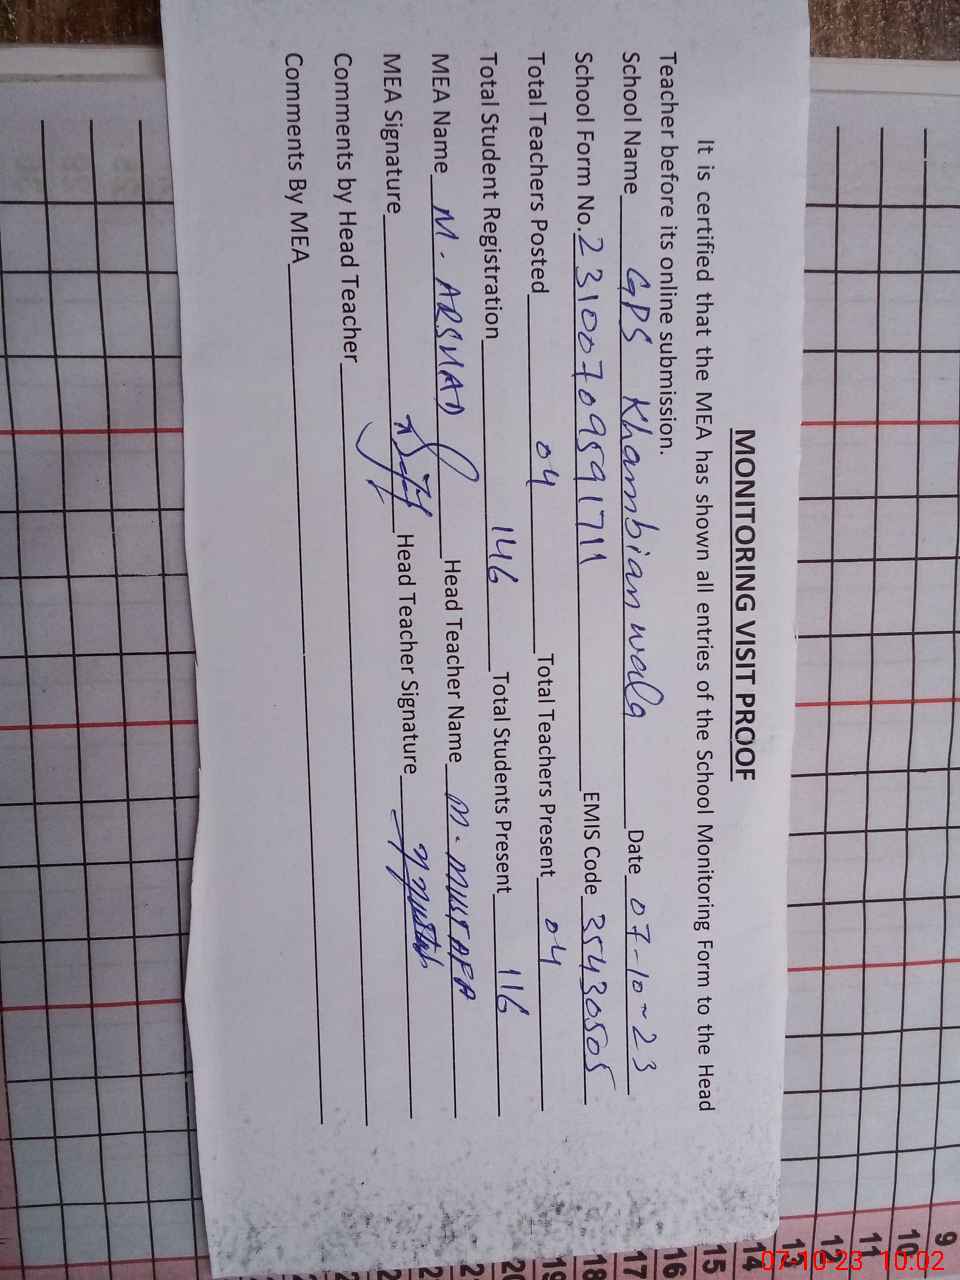 MONITORING VISIT PROOF
It is certified that the MEA has shown all entries of the School Monitoring Form to the Head
Teacher before its online submission.
School Name GPS Khambian wala Date 07-10-23
School Form No. 2310070959171 EMIS Code 35430505
Total Teachers Posted 04 Total Teachers Present 04
Total Student Registration 146 Total Students Present 116
MEA Name M. ARSHAD Head Teacher Name M. MUSTAFA
MEA Signature Head Teacher Signature
Comments by Head Teacher
Comments By MEA
9
10
11
12
13
14
15
16
17
18
19
20
07-10-23 10:02